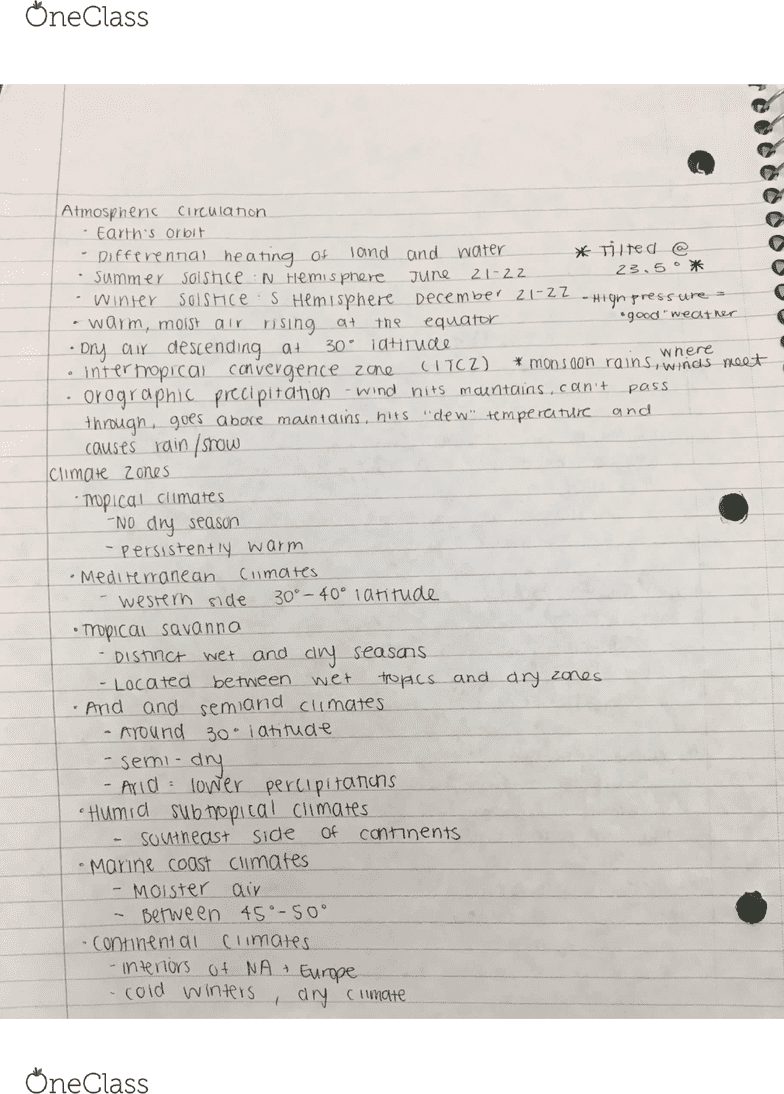 OneClass
Atmospheric circulation
· Earth's orbit
- Differential heating of land and water * Tilted @
· Summer solstice : N Hemisphere June 21-22 23.5° *
· Winter solstice : S Hemisphere December 21-22 - High pressure =
· warm, moist air rising at the equator "good" weather
· Dry air descending at 30° latitude
· intertropical convergence zone (ITCZ) * monsoon rains, where winds meet
· orographic precipitation - wind hits mountains, can't pass
through, goes above mountains, hits "dew" temperature and
causes rain/snow
Climate zones
· Tropical climates
- No dry season
- persistently warm
· Mediterranean climates
- western side 30°-40° latitude
· Tropical savanna
- Distinct wet and dry seasons
- Located between wet tropics and dry zones
· Arid and semiarid climates
- Around 30° latitude
- semi-dry
- Arid = lower percipitations
· Humid subtropical climates
- southeast side of continents
· Marine coast climates
- Moister air
- Between 45°-50°
· Continental climates
- interiors of NA + Europe
- cold winters, dry climate
OneClass